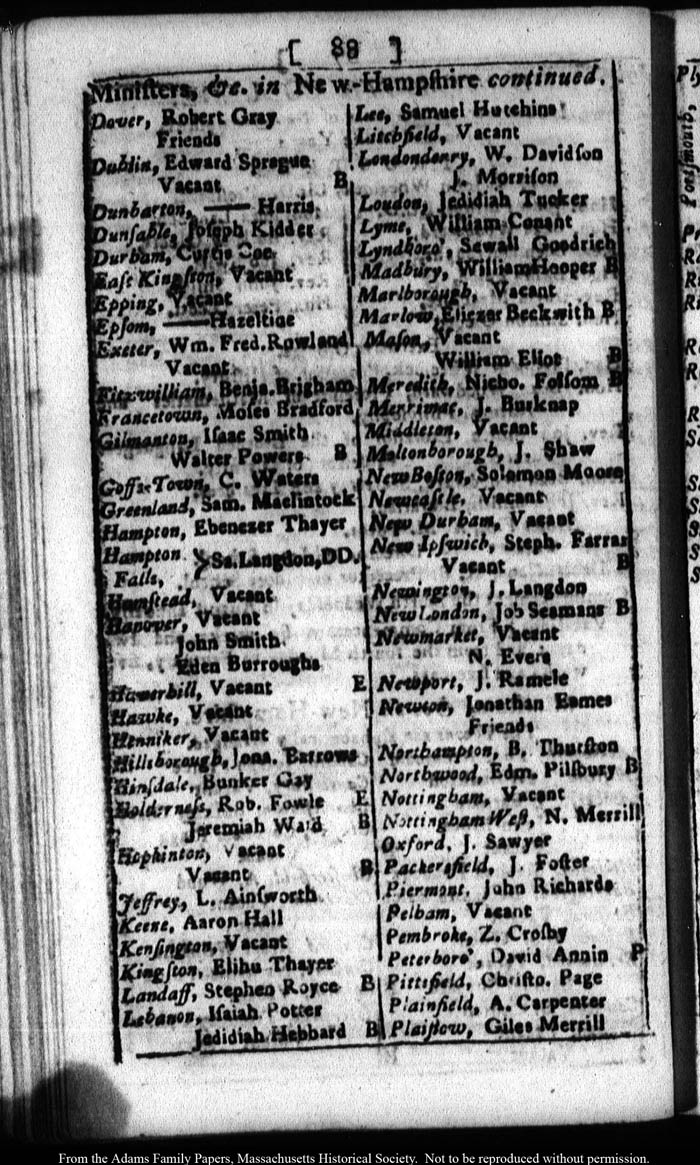 [ 88 ]
Miniſters, &c. in New-Hampſhire continued.
Dover, Robert Gray
Friends
Dublin, Edward Sprague
Vacant B
Dunbarton, —— Harris
Dunſable, Joſeph Kidder
Durham, Curtis Coe
Eaſt Kingſton, Vacant
Epping, Vacant
Epſom, ——Hazeltine
Exeter, Wm. Fred. Rowland
Vacant
Fitzwilliam, Benja. Brigham
Francetown, Moſes Bradford
Gilmanton, Iſaac Smith
Walter Powers B
Goffs-Town, C. Waters
Greenland, Sam. Maclintock
Hampton, Ebenezer Thayer
Hampton
Falls, } Sa. Langdon, DD.
Hamſtead, Vacant
Hanover, Vacant
John Smith
Eden Burroughs
Haverhill, Vacant E
Hawke, Vacant
Henniker, Vacant
Hillsborough, Jona. Barrows
Hinſdale, Bunker Gay
Holderneſs, Rob. Fowle E
Jeremiah Ward B
Hopkinton, Vacant
Vacant B
Jeffrey, L. Ainſworth
Keene, Aaron Hall
Kenſington, Vacant
Kingſton, Elihu Thayer
Landaff, Stephen Royce B
Lebanon, Iſaiah Potter
Jedidiah Hebbard B
Lee, Samuel Hutchins
Litchfield, Vacant
Londonderry, W. Davidſon
J. Morriſon
Loudon, Jedidiah Tucker
Lyme, William Conant
Lyndboro', Sewall Goodrich
Madbury, William Hooper B
Marlborough, Vacant
Marlow, Eliezer Beckwith B
Maſon, Vacant
William Eliot B
Meredith, Nicho. Folſom B
Merrimac, J. Burknap
Middleton, Vacant
Moltonborough, J. Shaw
New Boſton, Solomon Moore
Newcaſtle, Vacant
New Durham, Vacant
New Ipſwich, Steph. Farrar
Vacant B
Newington, J. Langdon
New London, Job Seamans B
Newmarket, Vacant
N. Evers
Newport, J. Ramele
Newton, Jonathan Eames
Friends
Northampton, B. Thurſton
Northwood, Edm. Pilſbury B
Nottingham, Vacant
Nottingham Weſt, N. Merrill
Oxford, J. Sawyer
Packersfield, J. Foſter
Piermont, John Richards
Pelham, Vacant
Pembroke, Z. Croſby
Peterboro', David Annin P
Pittsfield, Chriſto. Page
Plainfield, A. Carpenter
Plaiſtow, Giles Merrill
Portſmouth,
From the Adams Family Papers, Massachusetts Historical Society. Not to be reproduced without permission.